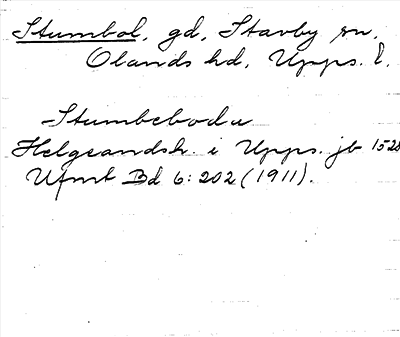 Stumbol, gd, Stavby sn.
Olands hd, Upps. l.
Stumbebodu
Helgeandsh. i Upps. jb 1528
Ufmt Bd 6:202 (1911).